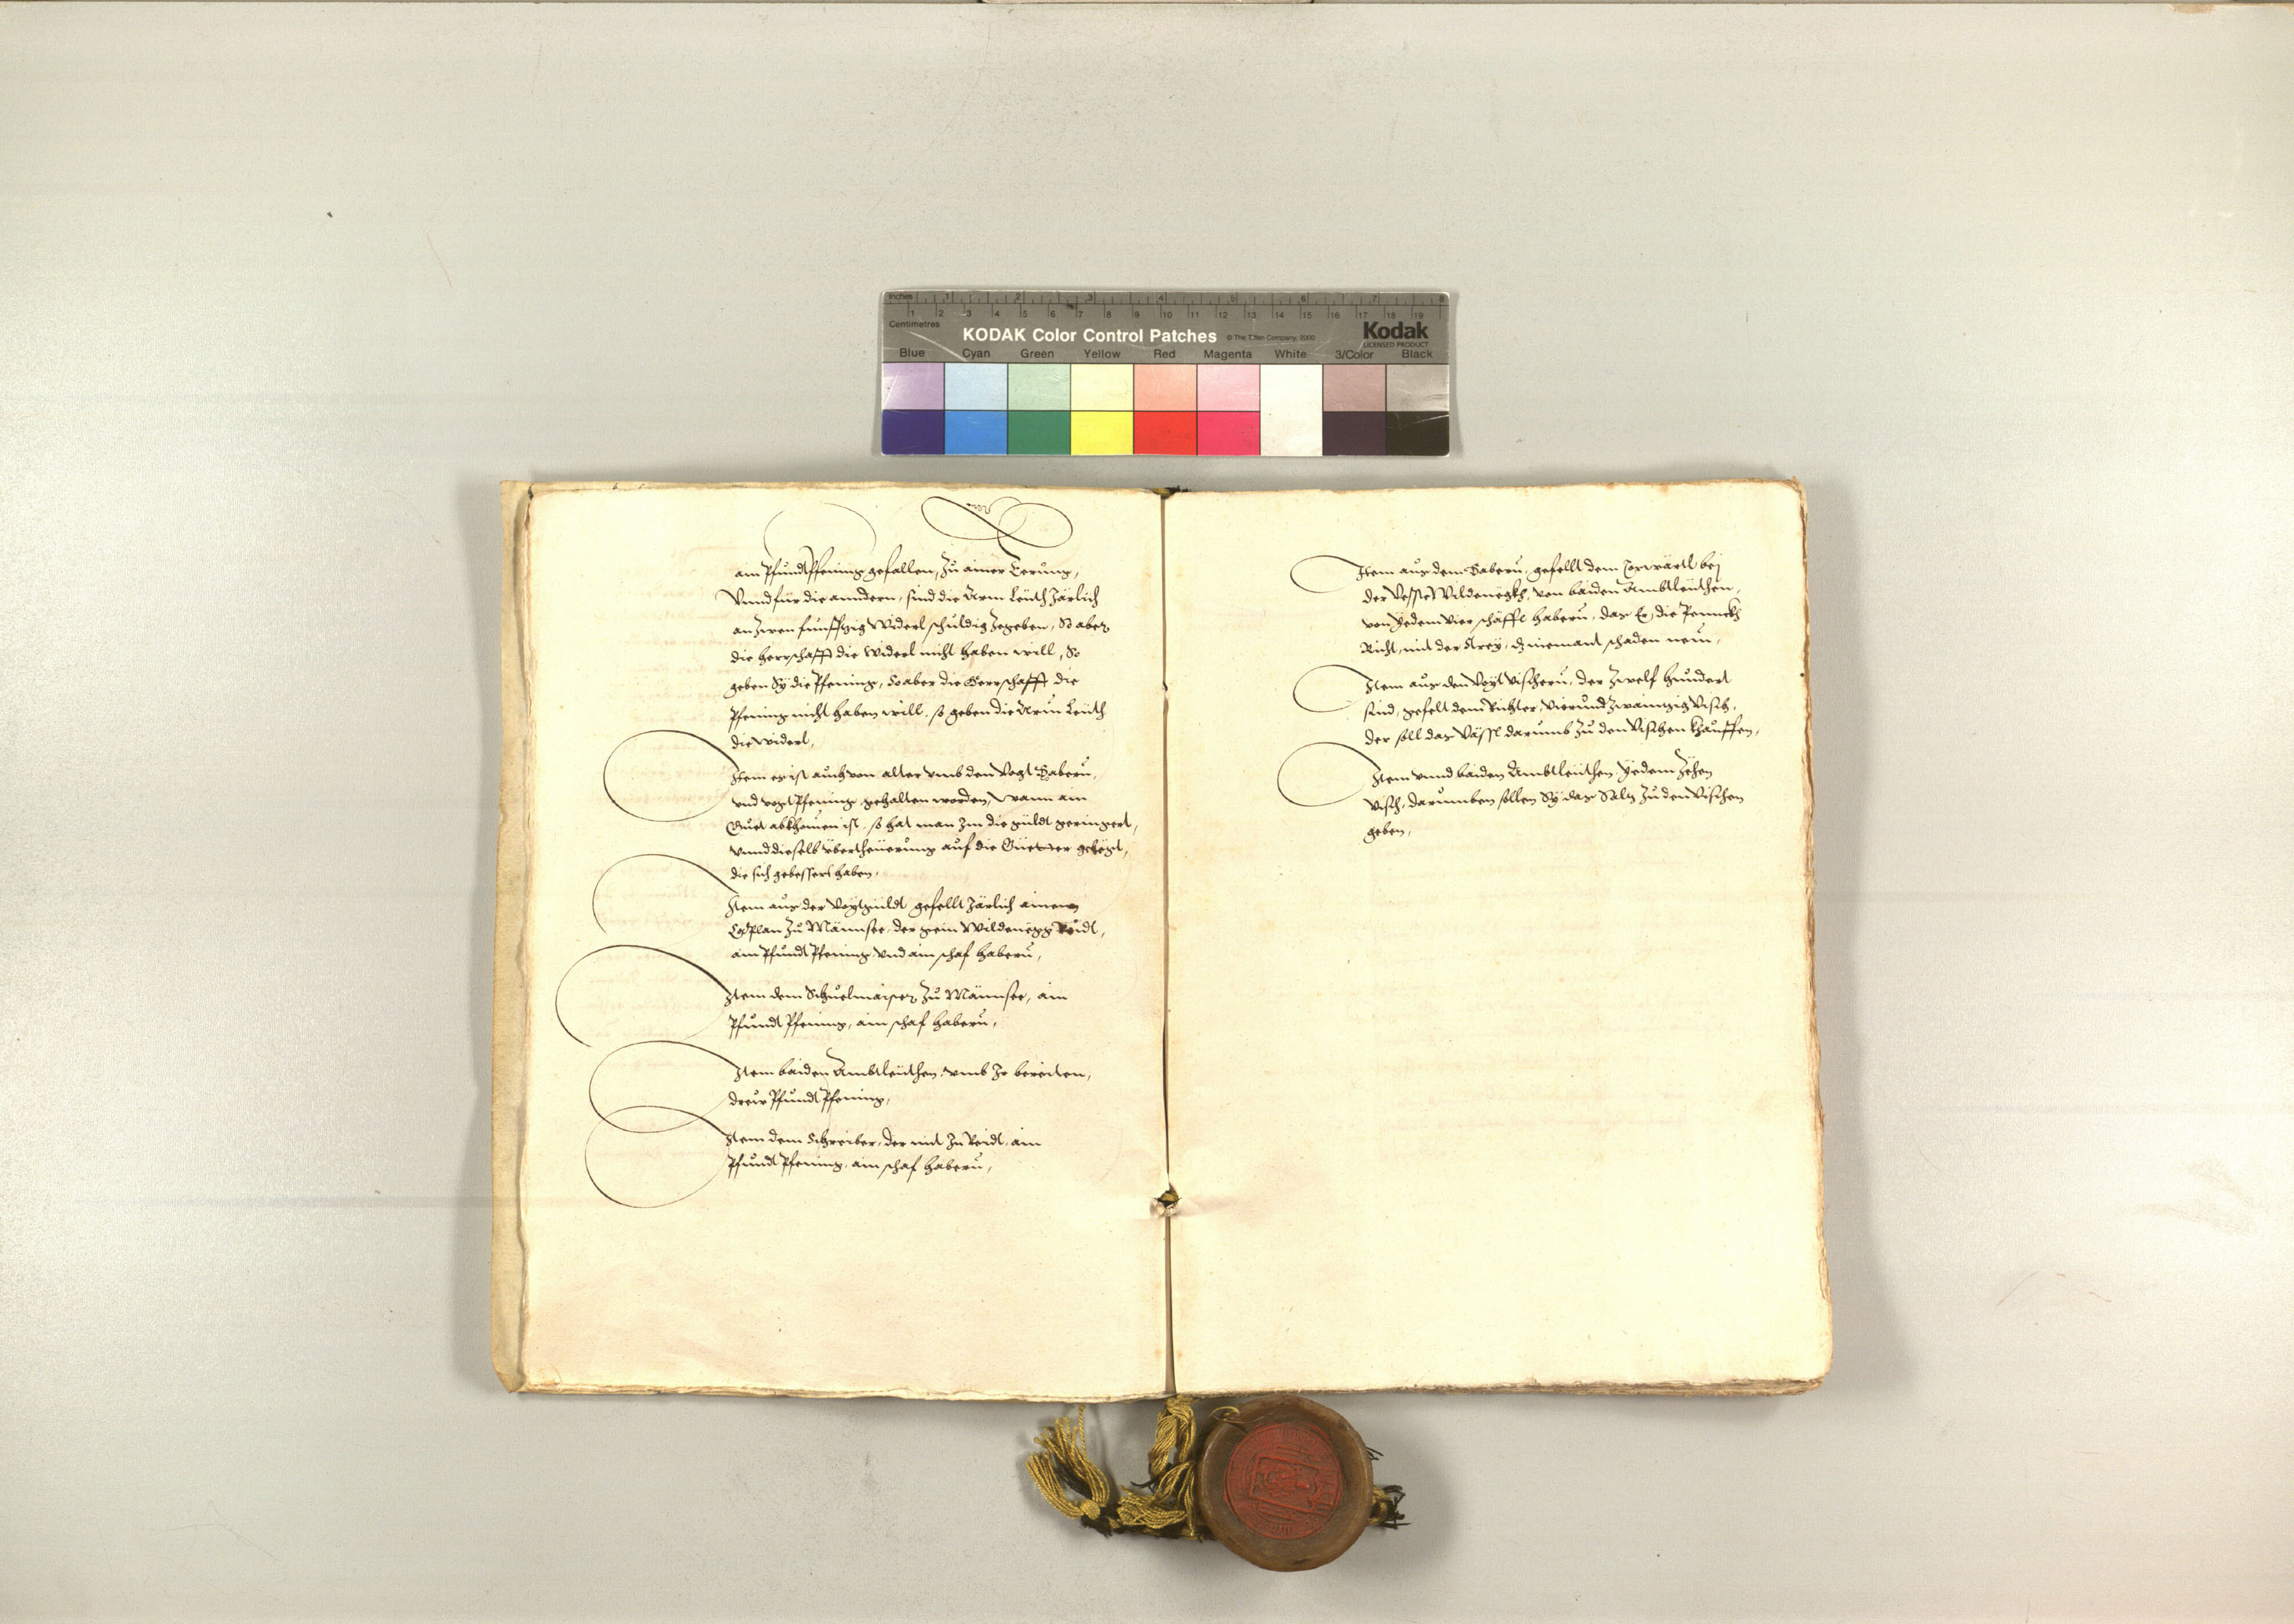 Inches 1 2 3 4 5 6 7 8
1 2 3 4 5 6 7 8 9 10 11 12 13 14 15 16 17 18 19
Centimetres
KODAK Color Control Patches © The Tiffen Company, 2000 Kodak
LICENSED PRODUCT
Blue Cyan Green Yellow Red Magenta White 3/Color Black
ain Pfundt pfening gefallen, Zu ainer Eerung,
Vnnd für die anndern, sind die Arm Leuth Järlich
an zwen funffzig Widerl schuldig zegeben, So aber
die herrschafft die Widerl nicht haben will, So
geben Sÿ die Pfening, So aber die Herrschafft die
Pfening nicht haben will, so geben die Arm Leuth
die widerl,
Item es ist auch von alter vmb den Vogt Habern,
vnd vogt Pfening gehalten worden, wann ain
Guet abkhomen ist, so hat man Im die güldt geringert,
vnnd dieselb übertheuerung auf die Güetter gelegt,
die sich gebessert haben,
Item aus der Vogtgüldt gefellt Järlich ainem
Caplan Zu Männsee, der gein Wildenegg Reidt,
ain Pfundt Pfening, vnd ain schaf habern,
Item dem Schuelmaister Zu Männsee, ain
Pfundt Pfening, ain schaf habern,
Item baiden Ambtleuthen, vmb Ir bereiten,
dreur Pfundt Pfening,
Item dem Schreiber, der mit In Reidt, ain
Pfundt Pfening, ain schaf habern,
Item aus dem Habern, gefellt dem Torwärtl bej
der Vesste Wildenegkh, von baiden Ambtleuthen,
von Yedem vier schäffl habern, das Er die
Richt, mit der, dz niemant schaden nem,
Item aus den Vogt Vischern, der Zwelf hundert
sind, gefelt dem Richter, Vierundzwainzig Visch,
der soll das Vässl darumb Zu den Vischen khauffen,
Item vnnd baiden Ambtleuthen Yedem Zehen
Visch, darumben sollen Sÿ das Saltz Zu den Vischen
geben,